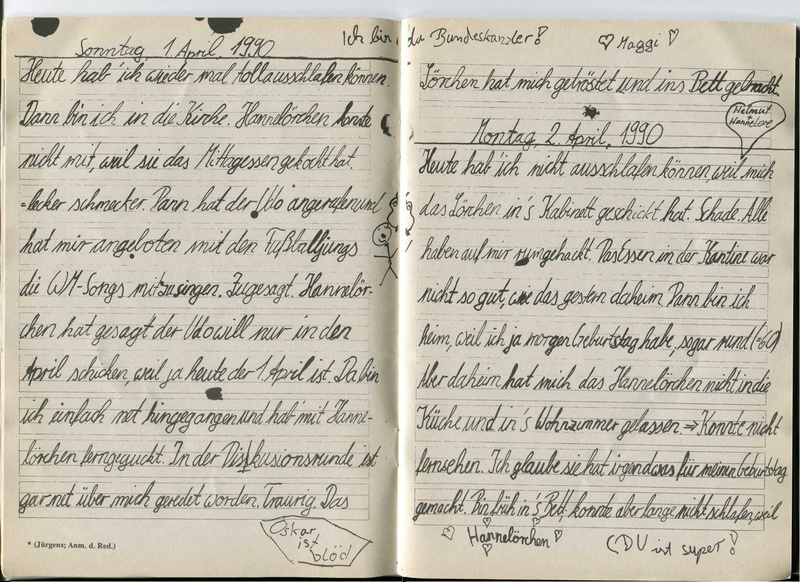 Sonntag 1. April, 1990
Heute hab' ich wieder mal toll ausschlafen können.
Dann bin ich in die Kirche. Hannelörchen konnte
nicht mit, weil sie das Mittagessen gekocht hat.
=lecker schmecker. Dann hat der Udo* angerufen und
hat mir angeboten mit den Fußballjungs
die WM-Songs mitzusingen. Zugesagt. Hannelör-
chen hat gesagt der Udo will nur in den
April schicken, weil ja heute der 1. April ist. Da bin
ich einfach net hingegangen und hab mit Hanne-
lörchen ferngeguckt. In der Diskusionsrunde ist
gar net über mich geredet worden. Traurig. Das
Oskar
ist
blöd
* (Jürgens; Anm. d. Red.)
Ich bin da Bundeskanzler!
Maggi
Lörchen hat mich getröstet und ins Bett gebracht.
Helmut
+
Hannelore
Montag, 2. April, 1990
Heute hab' ich nicht ausschlafen können, weil mich
das Lörchen in's Kabinett geschickt hat. Schade. Alle
haben auf mir rumgehackt. Das Essen in der Kantine war
nicht so gut, wie das gestern daheim. Dann bin ich
heim, weil ich ja morgen Geburtstag habe, sogar rund (=60)
Aber daheim hat mich das Hannelörchen nicht in die
Küche und in's Wohnzimmer gelassen. ⇒ Konnte nicht
fernsehen. Ich glaube sie hat irgendwas für meinen Geburtstag
gemacht! Bin früh in's Bed, konnte aber lange nicht schlafen, weil
Hannelörchen
CDU ist super!